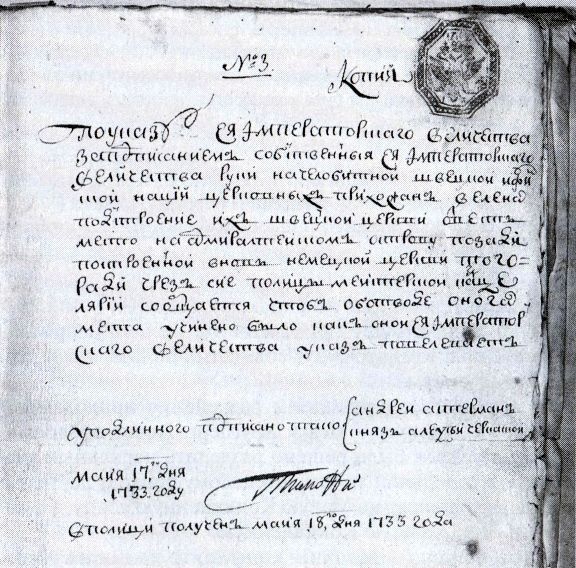 № 3 Копия
По указу ея Императорскаго величества
за подписаниемъ собственныя ея Императорскаго
величества руки на челобитной швецкой и фин
ской нации церковныхъ прихожанъ велено
под строение ихъ швецкой церкви отвесть
место на адмиралтейскомъ острову позади
построенной вновь немецкой церкви и того
ради чрез сие полицымейстерской канце
лярии сообщается чтобъ об отводе оного
места учинено было какъ оной ея Император
скаго величества указъ повелеваетъ
у подлинного подписано тако
андреи остерманъ
князь алексеи черкаской
майя 17 дня
1733 году
в полицыи полученъ майя 18 дня 1733 года